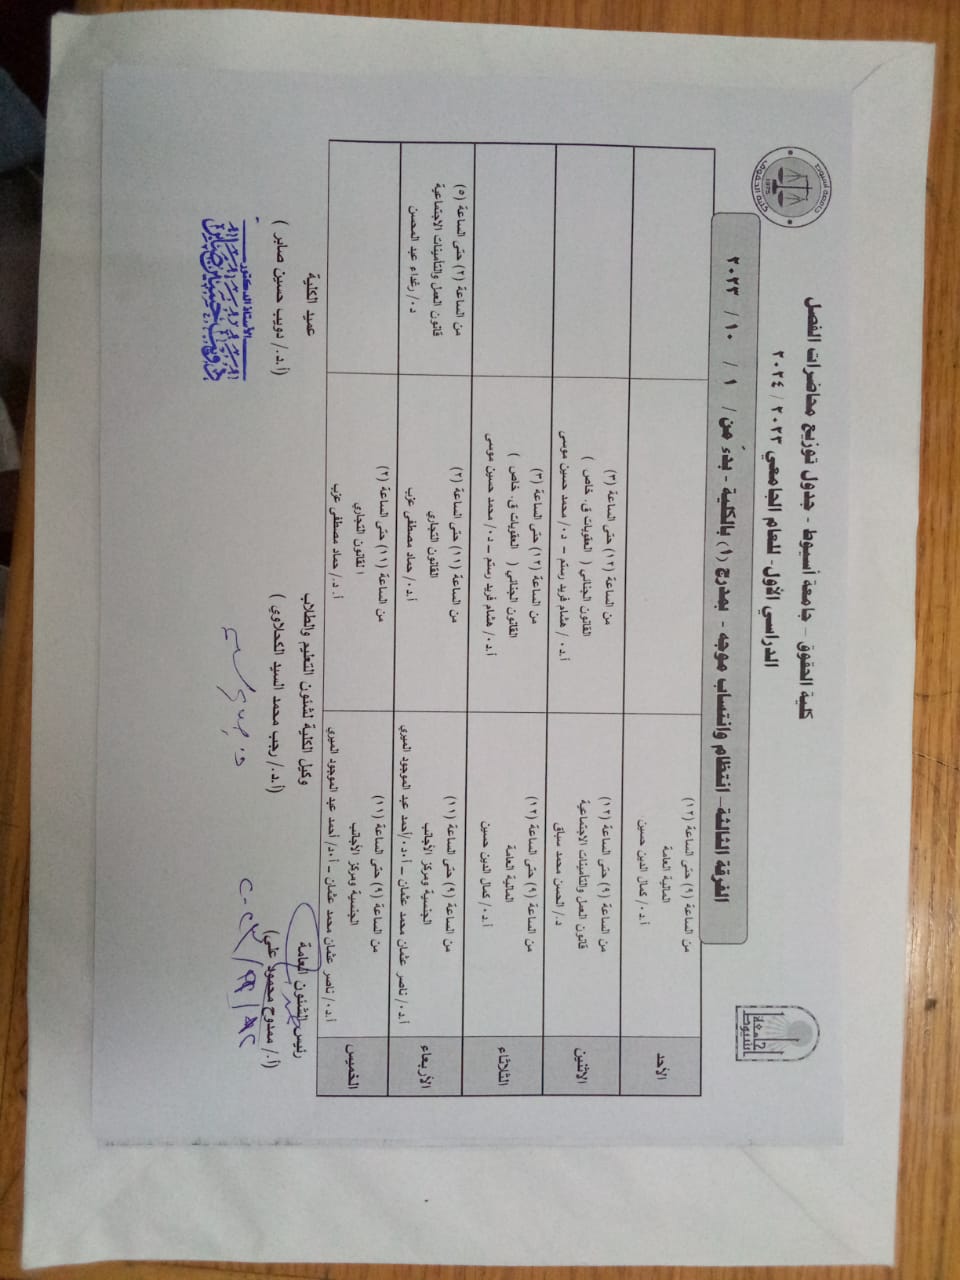 كلية الحقوق – جامعة أسيوط - جدول توزيع محاضرات الفصل
الدراسي الأول- للعام الجامعي ٢٠٢٣ / ٢٠٢٤
الفرقة الثالثة– انتظام وانتساب موجه - بمدرج (١) بالكلية - بدء من ١ / ١٠ / ٢٠٢٣
جامعة أسيوط
الأحد
من الساعة (٩) حتى الساعة (١٢)
المالية العامة
أ.د./ كمال الدين حسين
الاثنين
من الساعة (٩) حتى الساعة (١٢)
قانون العمل والتأمينات الاجتماعية
د./ الحسن محمد سباق
من الساعة (١٢) حتى الساعة (٣)
القانون الجنائي ( العقوبات ق. خاص )
أ.د./ هشام فريد رستم – د./ محمد حسين موسى
الثلاثاء
من الساعة (٩) حتى الساعة (١٢)
المالية العامة
أ.د./ كمال الدين حسين
من الساعة (١٢) حتى الساعة (٣)
القانون الجنائي ( العقوبات ق. خاص )
أ.د./ هشام فريد رستم – د./ محمد حسين موسى
الأربعاء
من الساعة (٩) حتى الساعة (١١)
الجنسية ومركز الأجانب
أ.د./ ناصر عثمان محمد عثمان – أ.د/أحمد عبد الموجود الميري
من الساعة (١١) حتى الساعة (٢)
القانون التجاري
أ.د./ حماد مصطفى عزب
من الساعة (٢) حتى الساعة (٥)
قانون العمل والتأمينات الاجتماعية
د./ رغداء عبد المحسن
الخميس
من الساعة (٩) حتى الساعة (١١)
الجنسية ومركز الأجانب
أ.د./ ناصر عثمان محمد عثمان – أ.د/ أحمد عبد الموجود الميري
من الساعة (١١) حتى الساعة (٢)
القانون التجاري
أ.د./ حماد مصطفى عزب
رئيس الشئون العامة
(أ./ ممدوح محمود علي)
وكيل الكلية لشئون التعليم والطلاب
(أ.د./ رجب محمد السيد الكحلاوي )
عميد الكلية
(أ.د./ دويب حسين صابر )
الأستاذ الدكتور
دويب حسين صابر